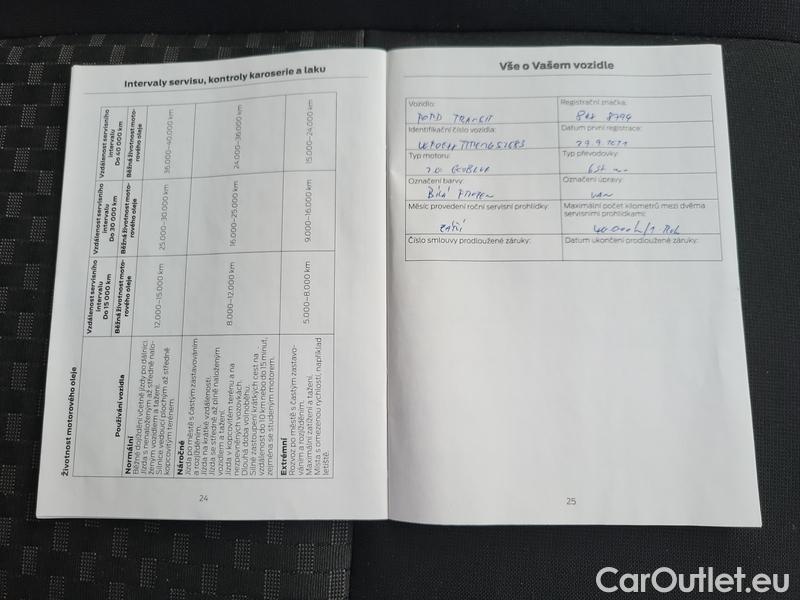 Intervaly servisu, kontroly karoserie a laku
Životnost motorového oleje
Používání vozidla
Vzdálenost servisního
intervalu
Do 15 000 km
Vzdálenost servisního
intervalu
Do 30 000 km
Vzdálenost servisního
intervalu
Do 40 000 km
Běžná životnost moto-
rového oleje
Běžná životnost moto-
rového oleje
Běžná životnost moto-
rového oleje
Normální
Běžné dojíždění včetně jízdy po dálnici.
Jízda s nenaloženým až středně nalo-
ženým vozidlem a tažení.
Silnice vedoucí plochým až středně
kopcovitým terénem.
12.000–15.000 km
25.000–30.000 km
35.000–40.000 km
Náročné
Jízda po městě s častým zastavováním
a rozjížděním.
Jízda na krátké vzdálenosti.
Jízda se středně až plně naloženým
vozidlem a tažení.
Jízda v kopcovitém terénu a na
nezpevněných vozovkách.
Dlouhá doba volnoběhu.
Silné zastoupení krátkých cest na
vzdálenost do 10 km nebo do 15 minut,
zejména se studeným motorem.
8.000–12.000 km
16.000–25.000 km
24.000–36.000 km
Extrémní
Rozvoz po městě s častým zastavo-
váním a rozjížděním.
Maximální zatížení a tažení.
Místa s omezenou rychlostí, například
letiště.
5.000–8.000 km
9.000–16.000 km
15.000–24.000 km
24
Vše o Vašem vozidle
Vozidlo:
FORD TRANSIT
Registrační značka:
Identifikační číslo vozidla:
Datum první registrace:
Typ motoru:
2.0 EcoBlue
Typ převodovky:
Označení barvy:
Bílá Frozen
Označení úpravy:
VAN
Měsíc provedení roční servisní prohlídky:
Září
Maximální počet kilometrů mezi dvěma
servisními prohlídkami:
Číslo smlouvy prodloužené záruky:
Datum ukončení prodloužené záruky:
25
CarOutlet.eu